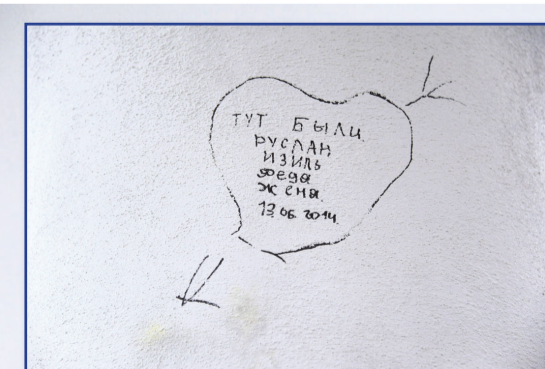 ТУТ БЫЛИ
РУСЛАН
ИЗИЛЬ
Федя
Женя
13.06.2014.